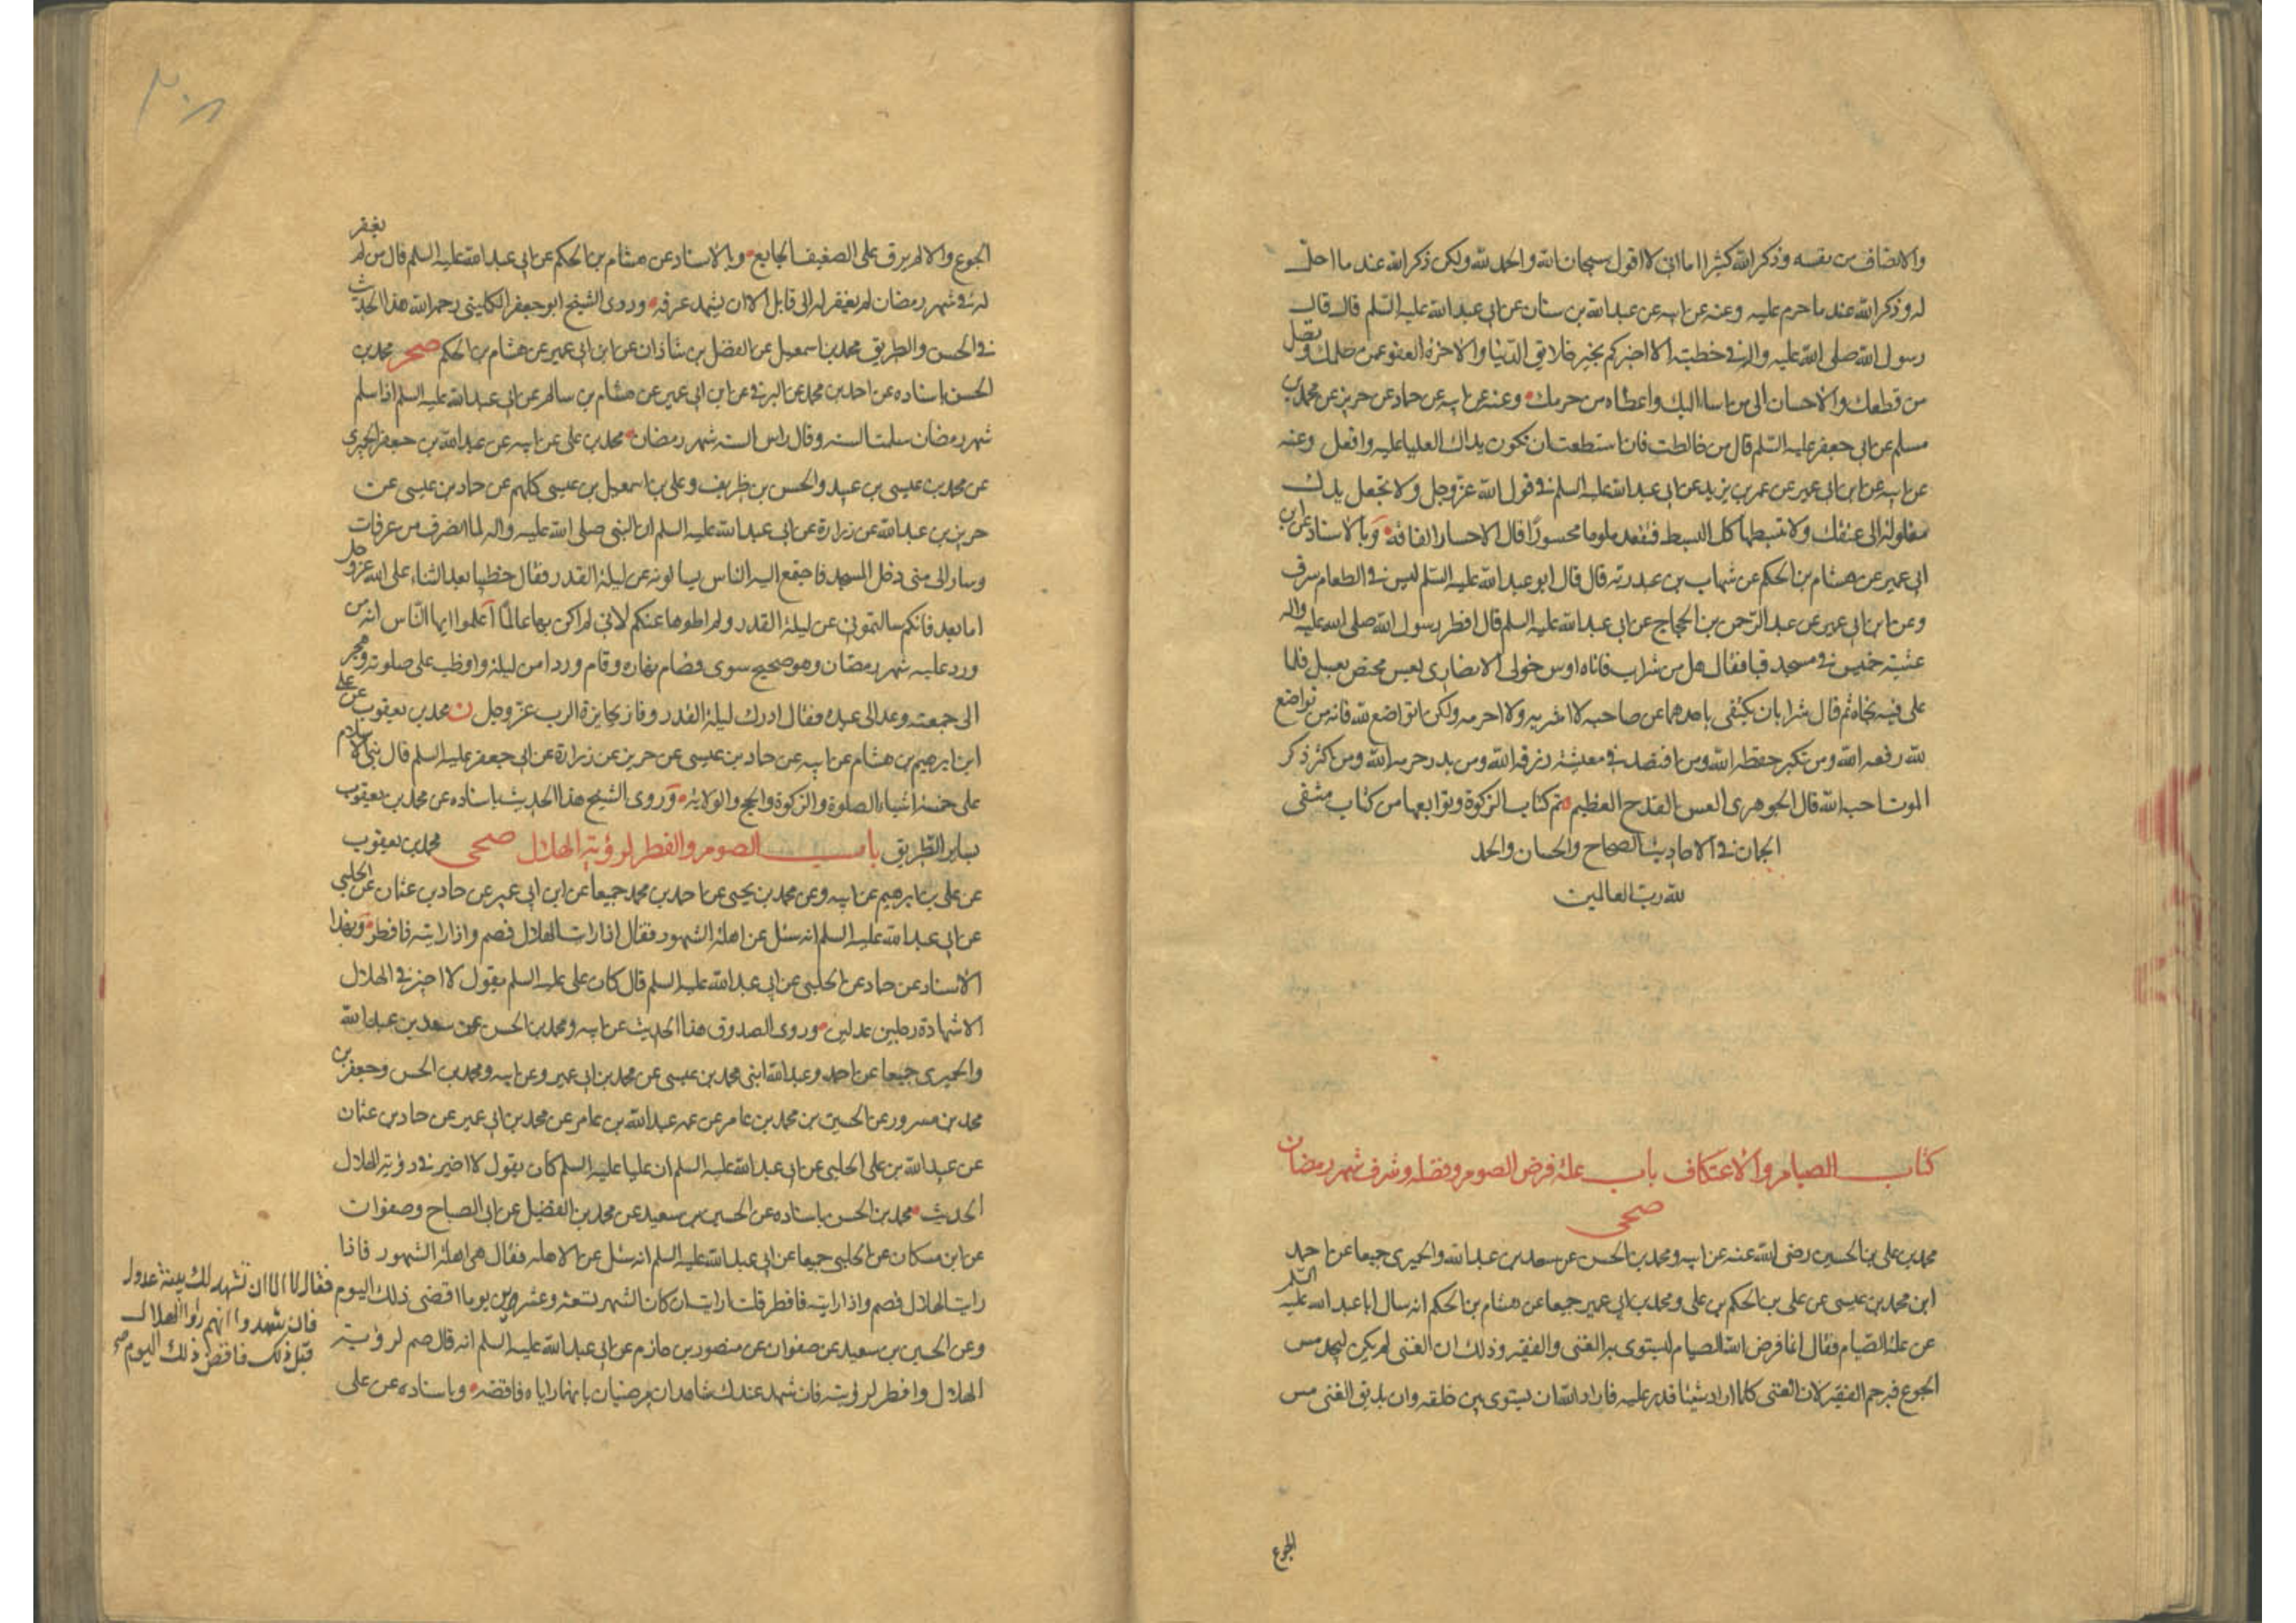 والانصاف من نفسه وذكر الله كثيرا اما انى لا اقول سبحان الله والحمد لله ولكن ذكر الله عند ما احل
له وذكر الله عند ما حرم عليه وعنه عن ابيه عن عبد الله بن سنان عن ابى عبد الله عليه السلم قال قال
رسول الله صلى الله عليه واله فى خطبته الا اخبركم بخير خلايق الدنيا والاخرة العفو عمن ظلمك وتصل
من قطعك والاحسان الى من اساء اليك واعطاء من حرمك وعنه عن ابيه عن حماد عن حريز عن محمد بن
مسلم عن ابى جعفر عليه السلم قال من خالطت فان استطعت ان تكون يداك العليا عليه وافعل وعنه
عن ابيه عن ابن ابى عمير عن عمر بن يزيد عن ابى عبد الله عليه السلم فى قول الله عز وجل ولا تجعل يدك
مغلولة الى عنقك ولا تبسطها كل البسط فتقعد ملوما محسورا قال الاحسار الفاقة وبالاسناد عن ابن
ابى عمير عن هشام بن الحكم عن شهاب بن عبد ربه قال قال ابو عبد الله عليه السلم ليس فى الطعام سرف
وعن ابن ابى عمير عن عبد الرحمن بن الحجاج عن ابى عبد الله عليه السلم قال افطر رسول الله صلى الله عليه واله
عشية خميس فى مسجد قبا فقال هل من شراب فاتاه اوس خولى الانصارى بعس مخيض بعسل فلما
على فيه نحاه ثم قال شرابان يكتفى باحدهما عن صاحبه لا اشربه ولا احرمه ولكن اتواضع لله فانه من تواضع
لله رفعه الله ومن تكبر خفضه الله ومن اقتصد فى معيشته رزقه الله ومن بذر حرمه الله ومن اكثر ذكر
الموت احبه الله قال الجوهرى العس القدح العظيم تم كتاب الزكوة وتوابعها من كتاب منتقى
الجمان فى الاحاديث الصحاح والحسان والحمد
لله رب العالمين
كتاب الصيام والاعتكاف باب علة فرض الصوم وفضله وشرف شهر رمضان
صحى
محمد بن على بن الحسين رضى الله عنه عن ابيه ومحمد بن الحسن عن سعد بن عبد الله والحميرى جميعا عن احمد
ابن محمد بن عيسى عن على بن الحكم بن على ومحمد بن ابى عمير جميعا عن هشام بن الحكم انه سال ابا عبد الله عليه السلم
عن علة الصيام فقال انما فرض الله الصيام ليستوى به الغنى والفقير وذلك ان الغنى لم يكن ليجد مس
الجوع فيرحم الفقير لان الغنى كلما اراد شيئا قدر عليه فاراد الله ان يستوى بين خلقه وان يذيق الغنى مس
الجوع
٣٠٨
الجوع والالم ليرق على الضعيف الجايع وبالاسناد عن هشام بن الحكم عن ابى عبد الله عليه السلم قال من لم يغفر
له فى شهر رمضان لم يغفر له الى قابل الا ان يشهد عرفة وروى الشيخ ابو جعفر الكلينى رحمه الله هذا الحديث
فى الحسن والطريق محمد بن اسمعيل عن الفضل بن شاذان عن ابن ابى عمير عن هشام بن الحكم صحر محمد بن
الحسن باسناده عن احمد بن محمد عن البرقى عن ابن ابى عمير عن هشام بن سالم عن ابى عبد الله عليه السلم اذا سلم
شهر رمضان سلمت السنة وقال راس السنة شهر رمضان محمد بن على عن ابيه عن عبد الله بن جعفر الحميرى
عن محمد بن عيسى بن عبيد والحسن بن ظريف وعلى بن اسمعيل بن عيسى كلهم عن حماد بن عيسى عن
حريز بن عبد الله عن زرارة عن ابى عبد الله عليه السلم ان النبى صلى الله عليه واله لما انصرف من عرفات
وسار الى منى دخل المسجد فاجتمع اليه الناس يسالونه عن ليلة القدر فقال خطيبا بعد الثناء على الله عز وجل
اما بعد فانكم سالتمونى عن ليلة القدر ولم اطوها عنكم لانى لم اكن بها عالما اعلموا ايها الناس انه من
ورد عليه شهر رمضان وهو صحيح سوى فصام نهاره وقام وردا من ليلة وواظب على صلوته وهجر
الى جمعته وغدا الى عيده فقال ادرك ليلة القدر وفاز بجايزة الرب عز وجل ن محمد بن يعقوب عن على
ابن ابرهيم بن هشام عن ابيه عن حماد بن عيسى عن حريز عن زرارة عن ابى جعفر عليه السلم قال بنى الاسلام
على خمسة اشياء الصلوة والزكوة والحج والولاية وروى الشيخ هذا الحديث باسناده عن محمد بن يعقوب
بساير الطريق باب الصوم والفطر لرؤية الهلال صحى محمد بن يعقوب
عن على بن ابرهيم عن ابيه وعن محمد بن يحيى عن احمد بن محمد جميعا عن ابن ابى عمير عن حماد بن عثمان عن الحلبى
عن ابى عبد الله عليه السلم انه سئل عن اهلة الشهور فقال اذا رايت الهلال فصم واذا رايته فافطر وبهذا
الاسناد عن حماد عن الحلبى عن ابى عبد الله عليه السلم قال كان على عليه السلم يقول لا اجيز فى الهلال
الا شهادة رجلين عدلين وروى الصدوق هذا الحديث عن ابيه ومحمد بن الحسن عن سعد بن عبد الله
والحميرى جميعا عن احمد وعبد الله ابنى محمد بن عيسى عن محمد بن ابى عمير وعن ابيه ومحمد بن الحسن وجعفر بن
محمد بن مسرور عن الحسين بن محمد بن عامر عن عمه عبد الله بن عامر عن محمد بن ابى عمير عن حماد بن عثمان
عن عبيد الله بن على الحلبى عن ابى عبد الله عليه السلم ان عليا عليه السلم كان يقول لا اجيز فى رؤية الهلال
الحديث محمد بن الحسن باسناده عن الحسين بن سعيد عن محمد بن الفضيل عن ابى الصباح وصفوان
عن ابن مسكان عن الحلبى جميعا عن ابى عبد الله عليه السلم انه سئل عن الاهلة فقال هى اهلة الشهور فاذا
رايت الهلال فصم واذا رايته فافطر قلت ارايت ان كان الشهر تسعة وعشرين يوما اقضى ذلك اليوم
وعن الحسين بن سعيد عن صفوان عن منصور بن حازم عن ابى عبد الله عليه السلم انه قال صم لرؤية
الهلال وافطر لرؤيته فان شهد عندك شاهدان مرضيان بانهما راياه فاقضه وباسناده عن على
فقال لا الا ان تشهد لك بينة عدول
فان شهدوا انهم راوا الهلال
قبل ذلك فاقض ذلك اليوم صح